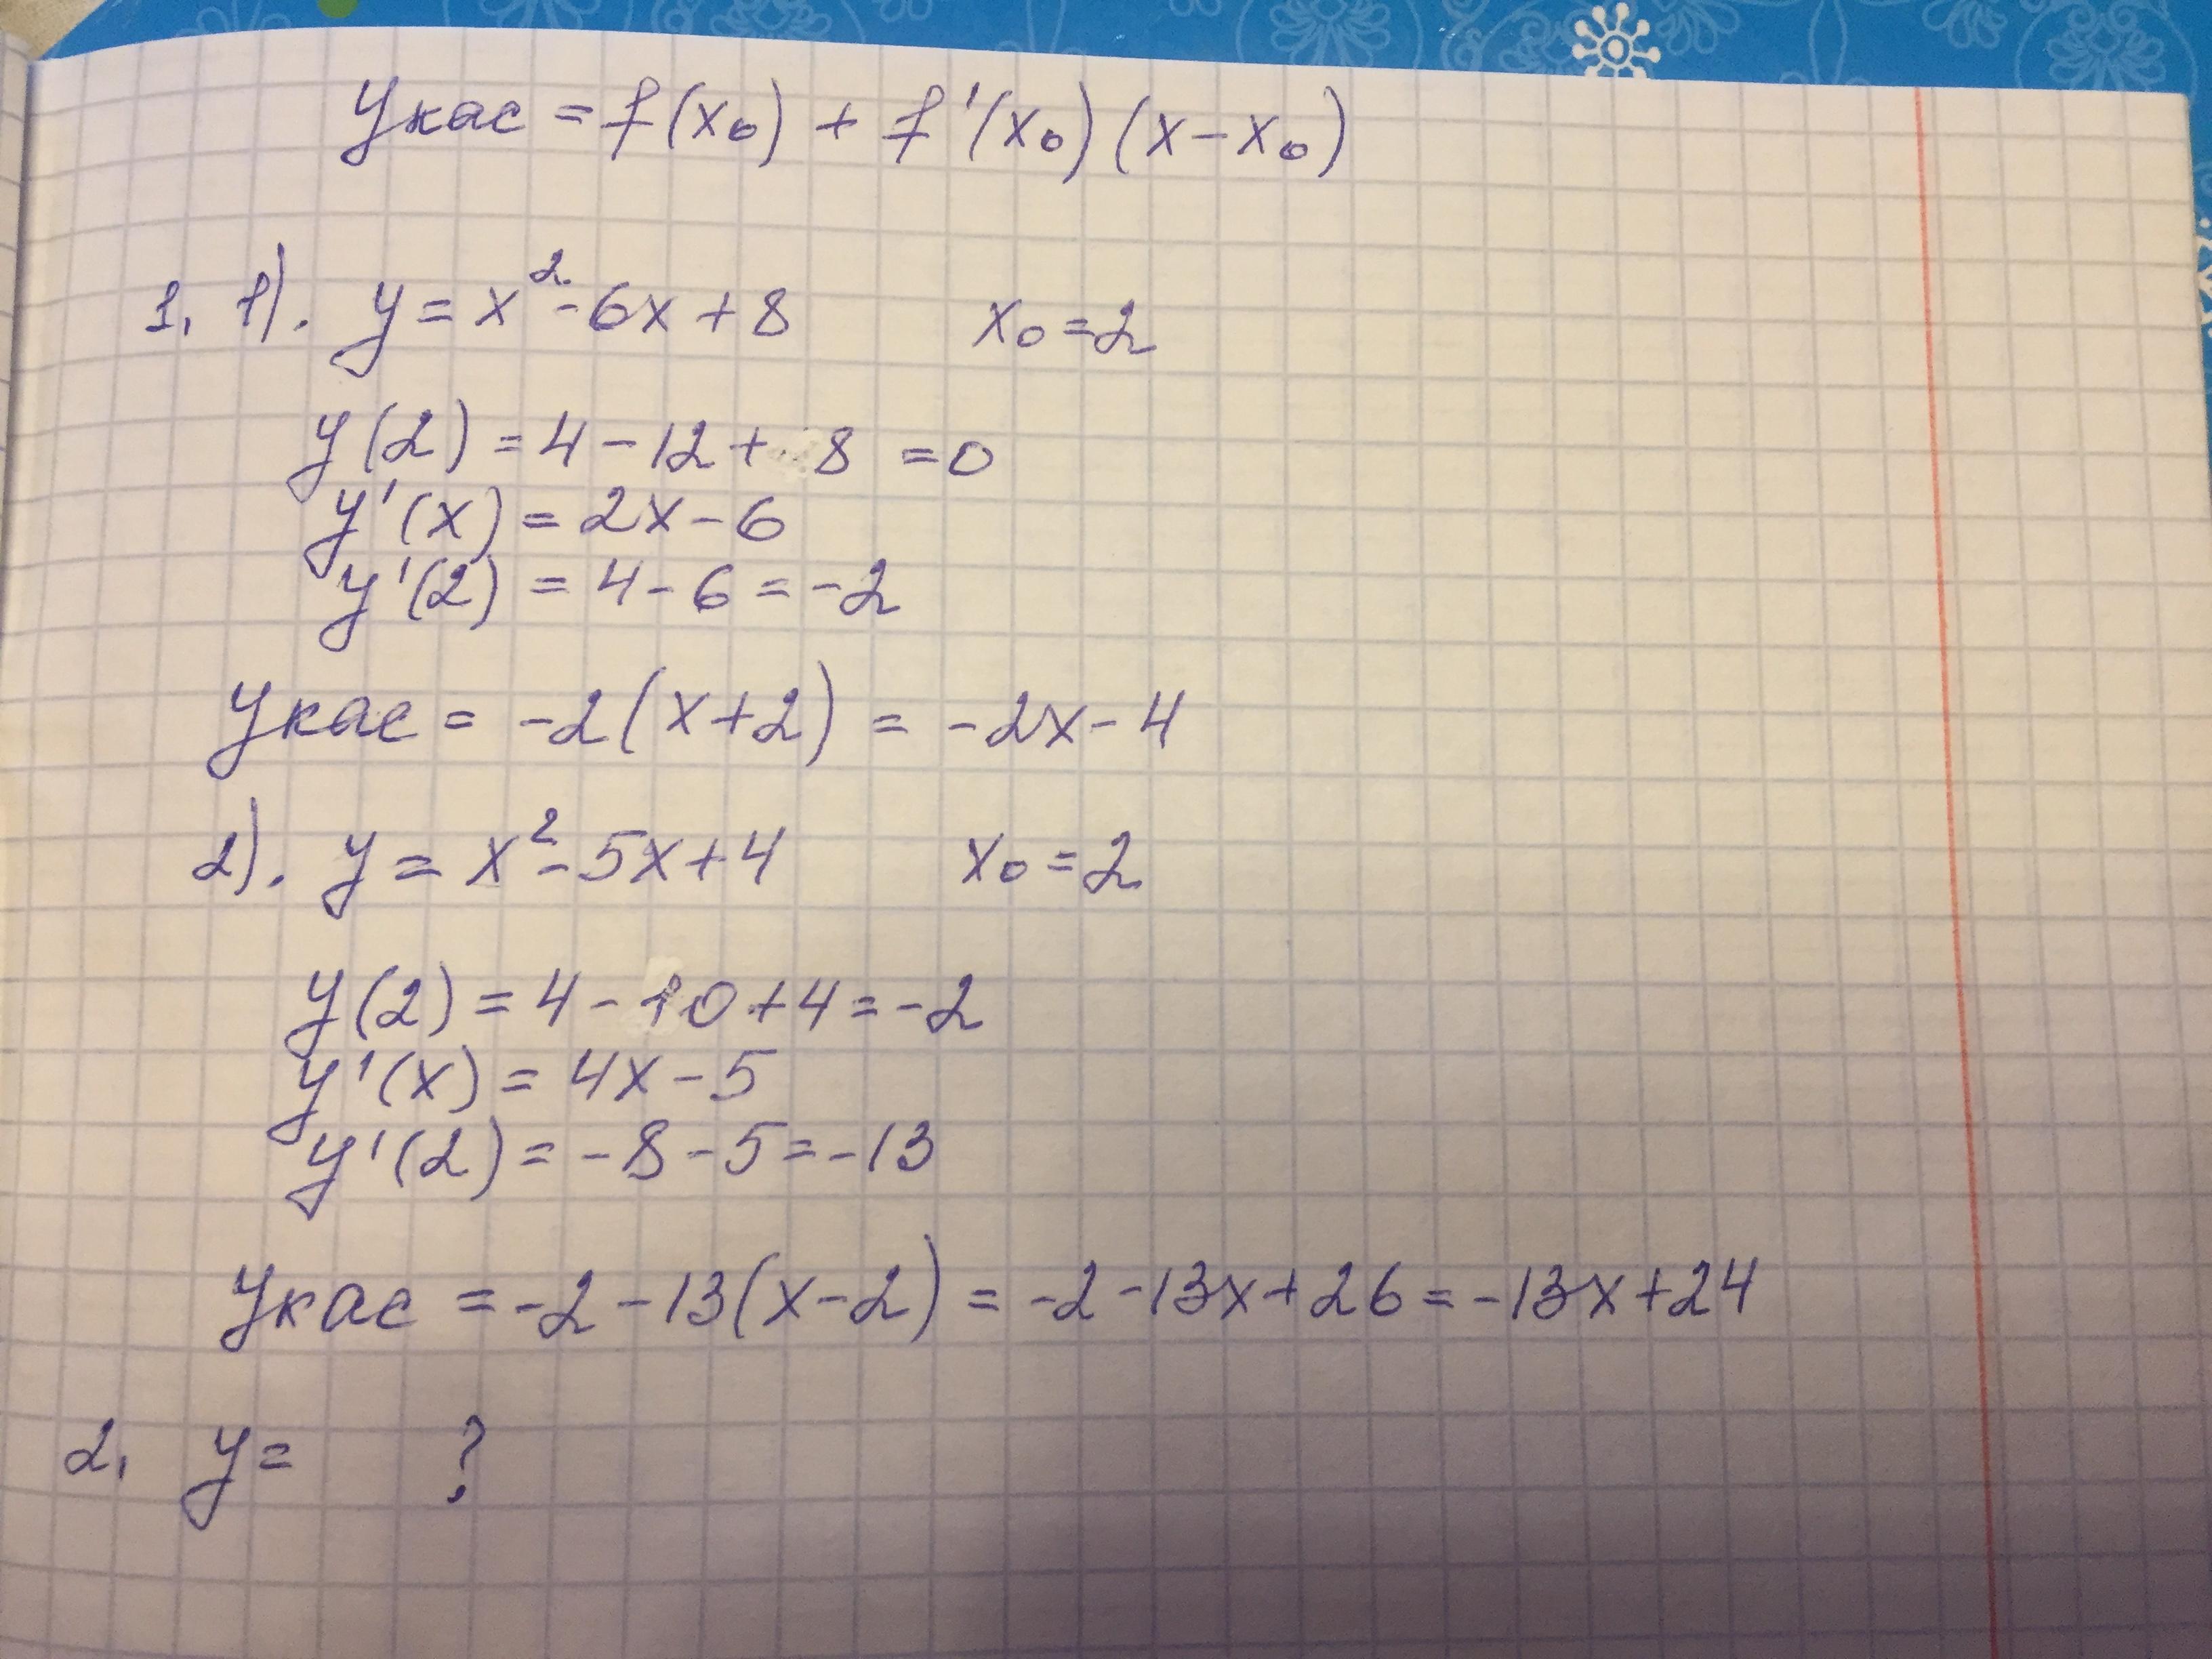 Yкас = f(x₀) + f'(x₀)(x-x₀)
1, 1). y = x²-6x+8 x₀=2
y(2) = 4-12+8 =0
y'(x) = 2x-6
y'(2) = 4-6=-2
Yкас = -2(x+2) = -2x-4
2). y = x²-5x+4 x₀=2
y(2) = 4-10+4=-2
y'(x) = 4x-5
y'(2) = -8-5=-13
Yкас =-2-13(x-2) = -2-13x+26=-13x+24
2, y= ?